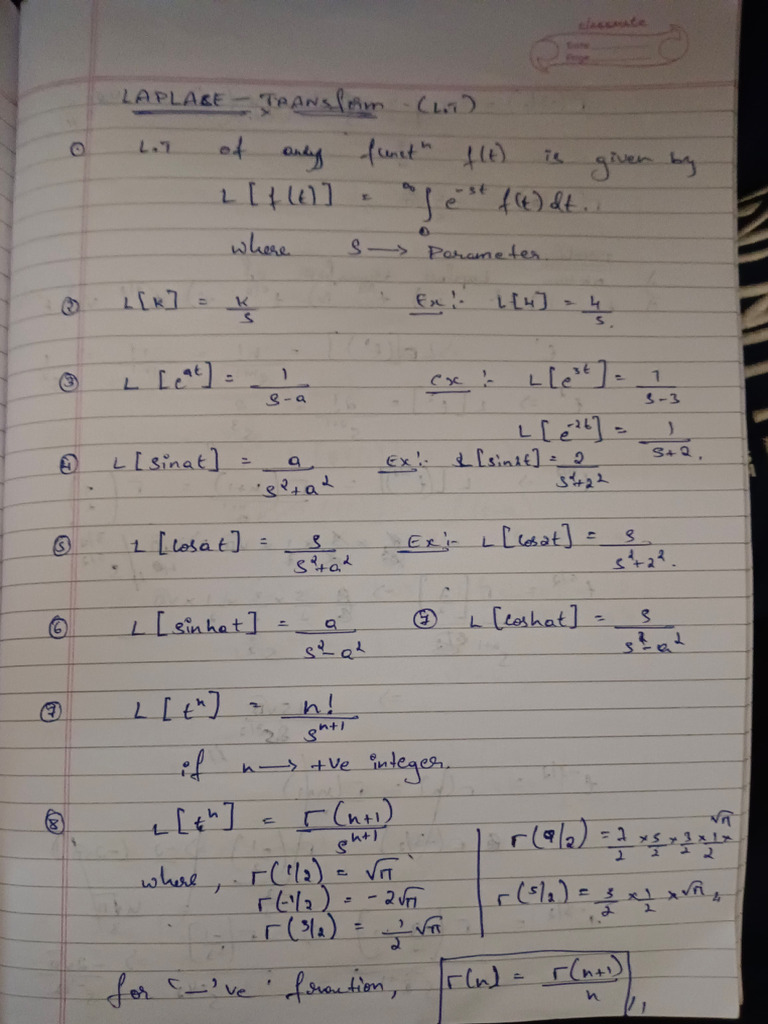 classmate
Date
Page
LAPLACE - TRANSform (L.T)
① L.T of any functⁿ f(t) is given by
L[f(t)] = ∞∫0 e^-st f(t) dt.
where s → Parameter.
② L[k] = k/s Ex:- L[4] = 4/s.
③ L[e^at] = 1/s-a ex:- L[e^3t] = 1/s-3
L[e^-2t] = 1/s+2.
④ L[sinat] = a/s²+a² Ex:- L[sin2t] = 2/s²+2²
⑤ L[cosat] = s/s²+a² Ex:- L[cos2t] = s/s²+2².
⑥ L[sinhat] = a/s²-a² ⑦ L[coshat] = s/s²-a²
⑦ L[tⁿ] = n!/s^n+1
if n → +ve integer.
⑧ L[tⁿ] = Γ(n+1)/s^n+1
where, Γ(1/2) = √π
Γ(-1/2) = -2√π
Γ(3/2) = 1/2 √π
Γ(9/2) = 7/2 × 5/2 × 3/2 × 1/2 × √π
Γ(5/2) = 3/2 × 1/2 × √π,,
for '-'ve' fraction, Γ(n) = Γ(n+1)/n ,,